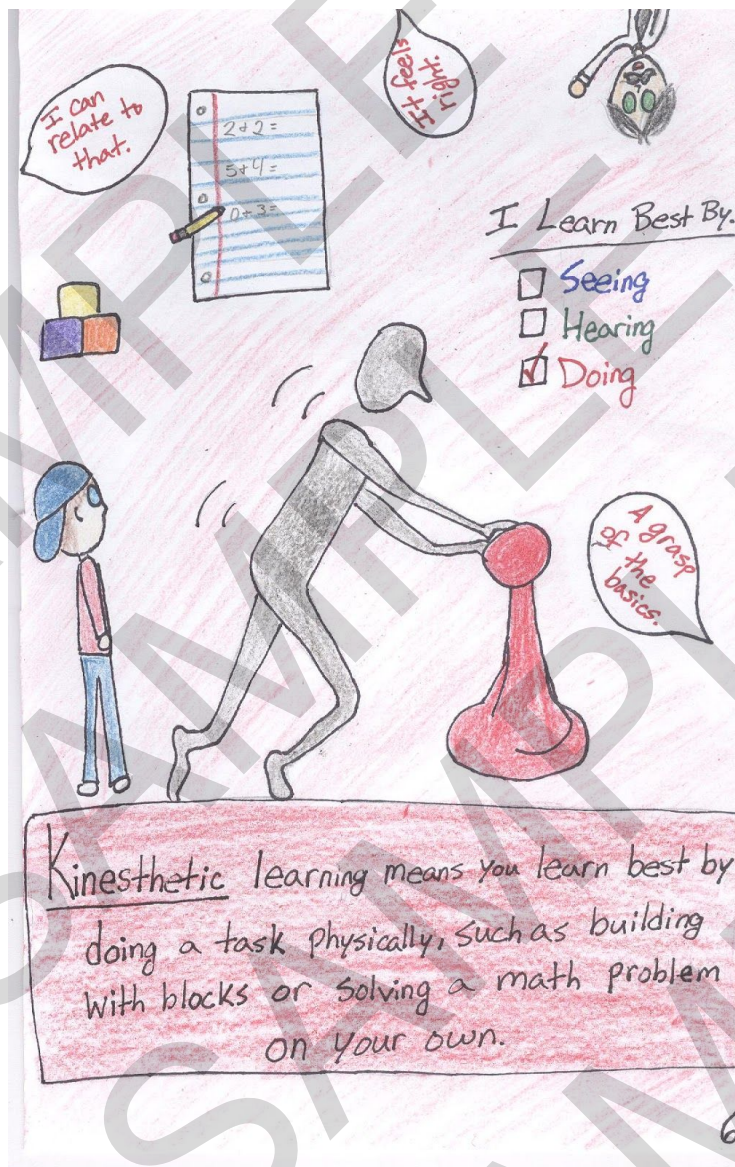 I can
relate to
that.
It feels
right.
2+2=
5+4=
0+3=
I Learn Best By.
Seeing
Hearing
Doing
A grasp
of the
basics.
Kinesthetic learning means you learn best by
doing a task physically, such as building
with blocks or solving a math problem
on your own.
6
SAMPLE
SAMPLE
SAMPLE